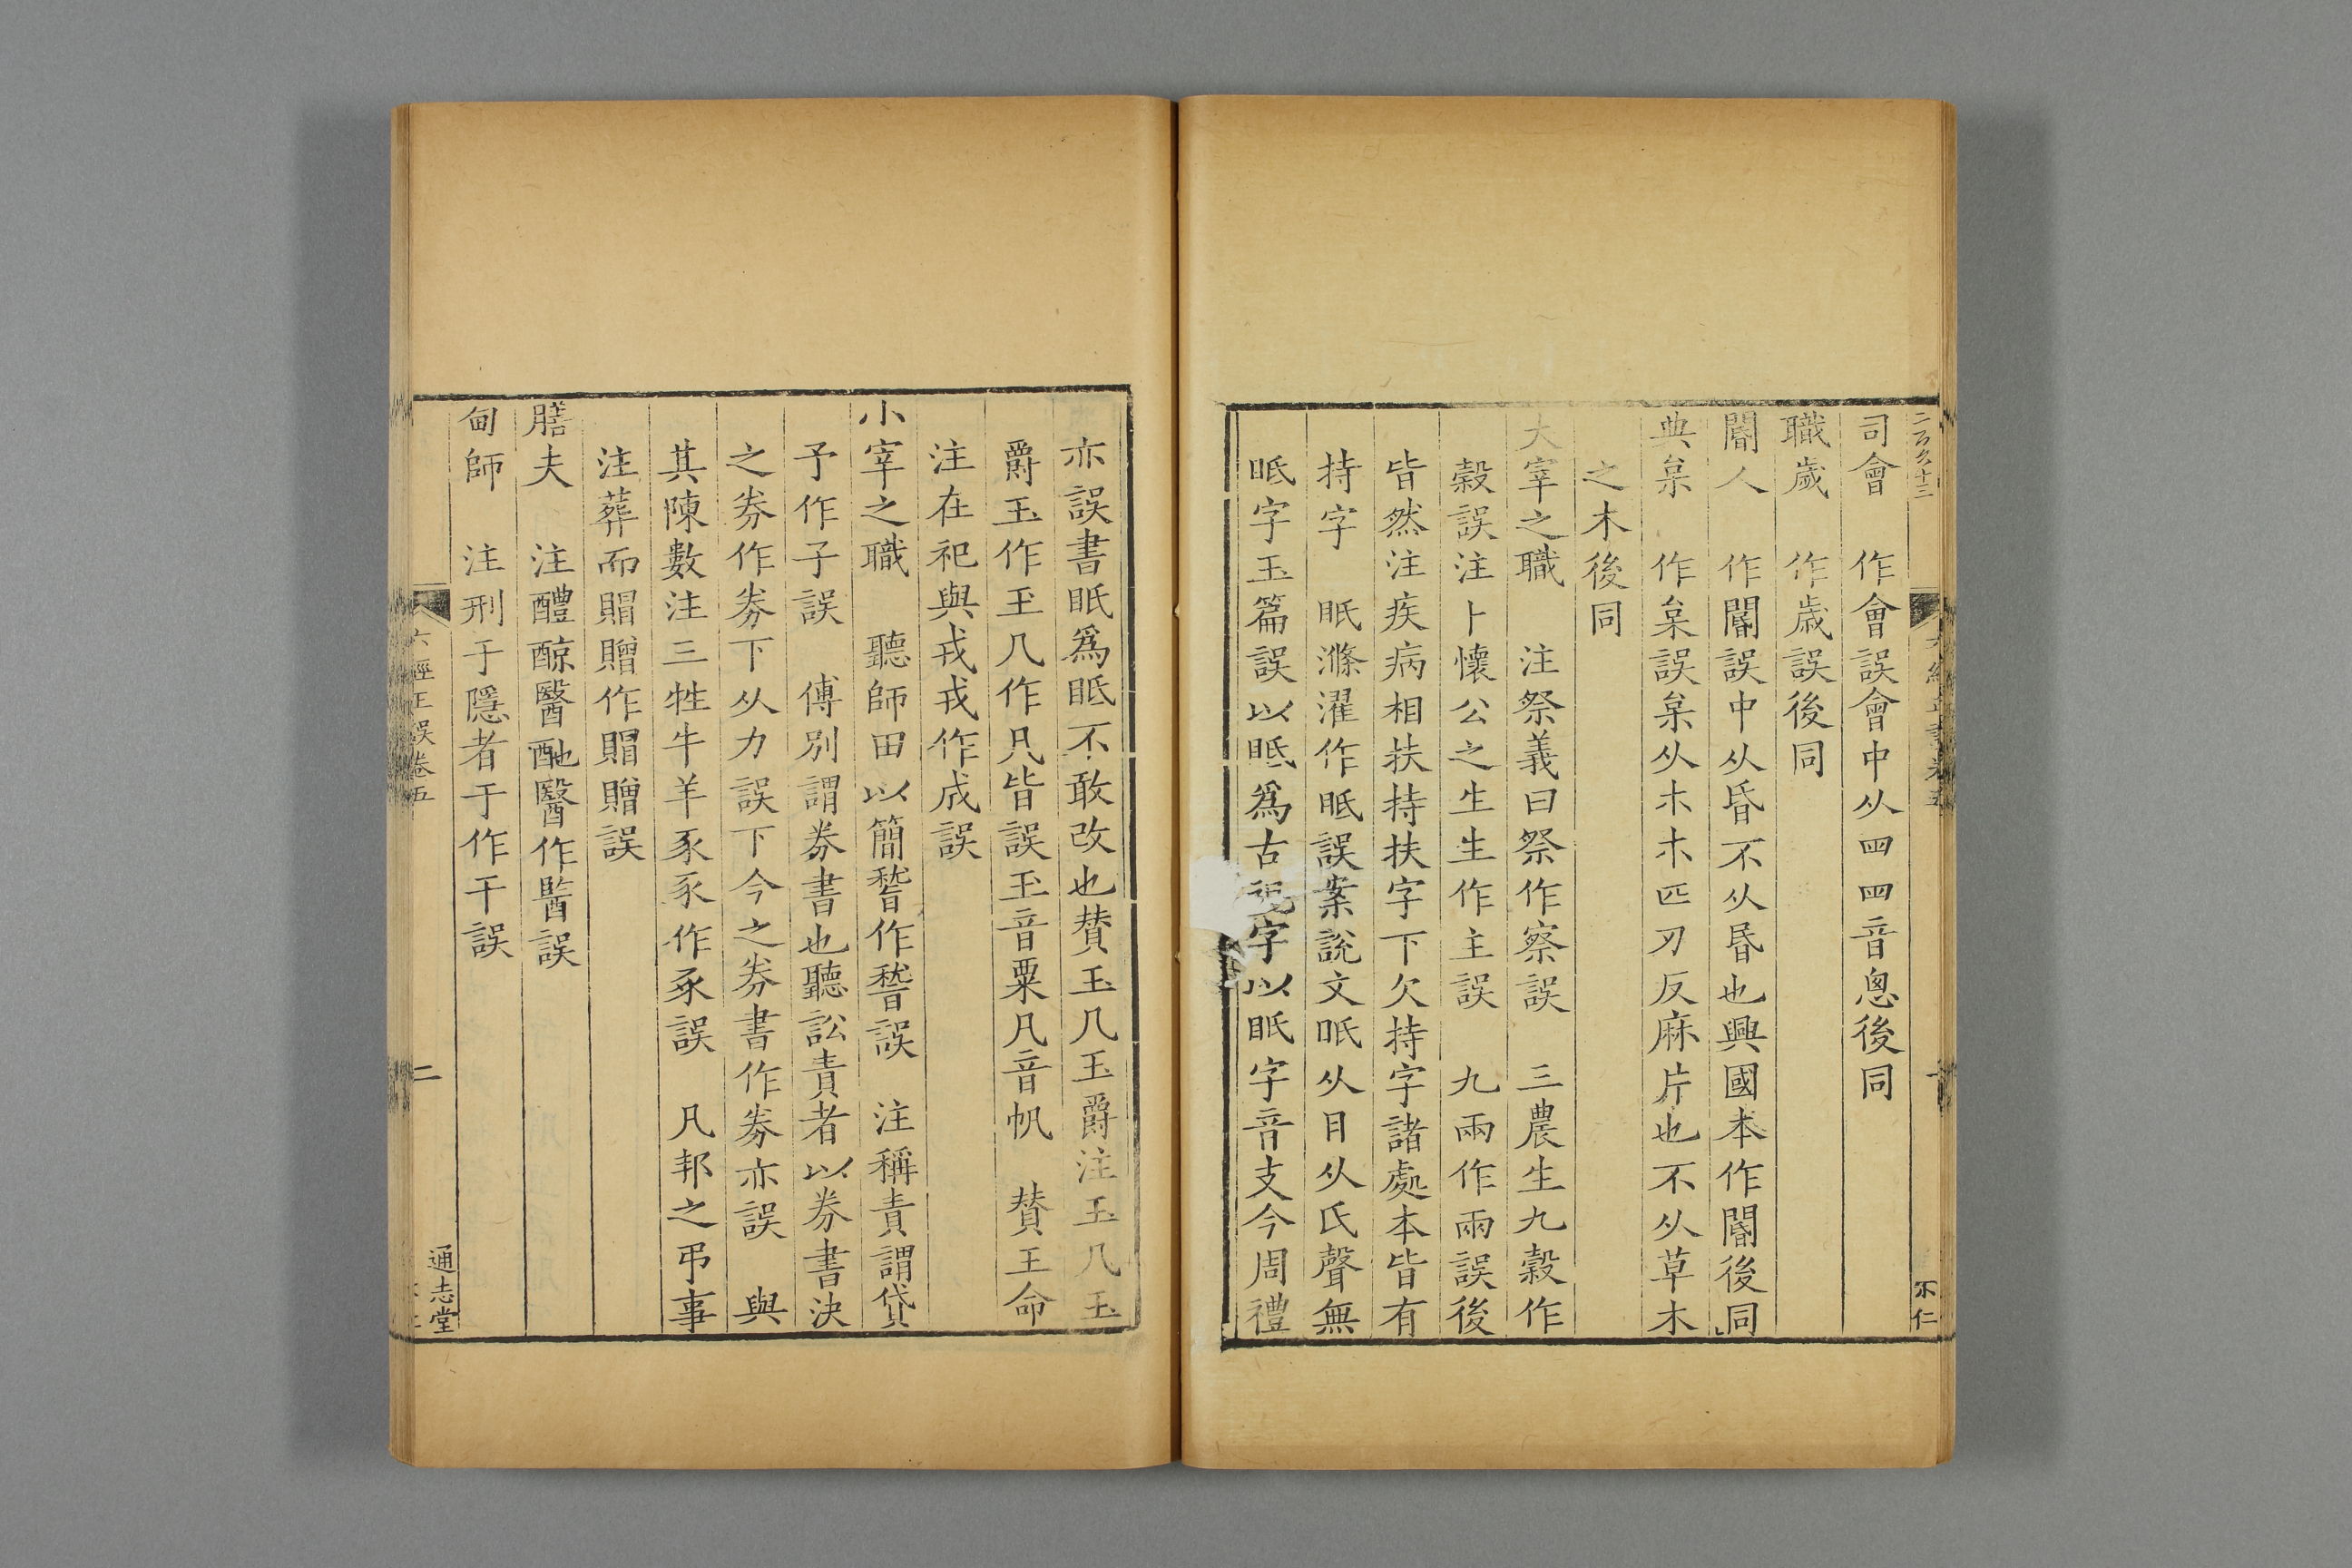 二百九十三
六經正誤卷五
一
不仁
司會 作會誤會中从四四音悤後同
職歲 作歳誤後同
閽人 作閽誤中从昏不从昬也興國本作閽後同
典枲 作枲誤枲从朩朩匹刃反麻片也不从草木
之木後同
大宰之職 注祭義曰祭作察誤 三農生九穀作
穀誤注卜懷公之生生作主誤 九兩作兩誤後
皆然注疾病相扶持扶字下欠持字諸處本皆有
持字 眂滌濯作眡誤案說文眂从目从氏聲無
眡字玉篇誤以眡爲古視字以眂字音支今周禮
亦誤書眂爲眡不敢改也贊玉几玉爵注玉几玉
爵玉作王几作凡皆誤王音粟凡音帆 贊王命
注在祀與戎戎作成誤
小宰之職 聽師田以簡稽作稽誤 注稱責謂貸
予作子誤 傅別謂券書也聽訟責者以券書決
之券作劵下从力誤下今之券書作劵亦誤 與
其陳數注三牲牛羊豕豕作豕誤 凡邦之弔事
注葬而賵贈作賵贈誤
膳夫 注醴醇醫酏醫作醫誤
甸師 注刑于隱者于作干誤
六經正誤卷五
二
通志堂